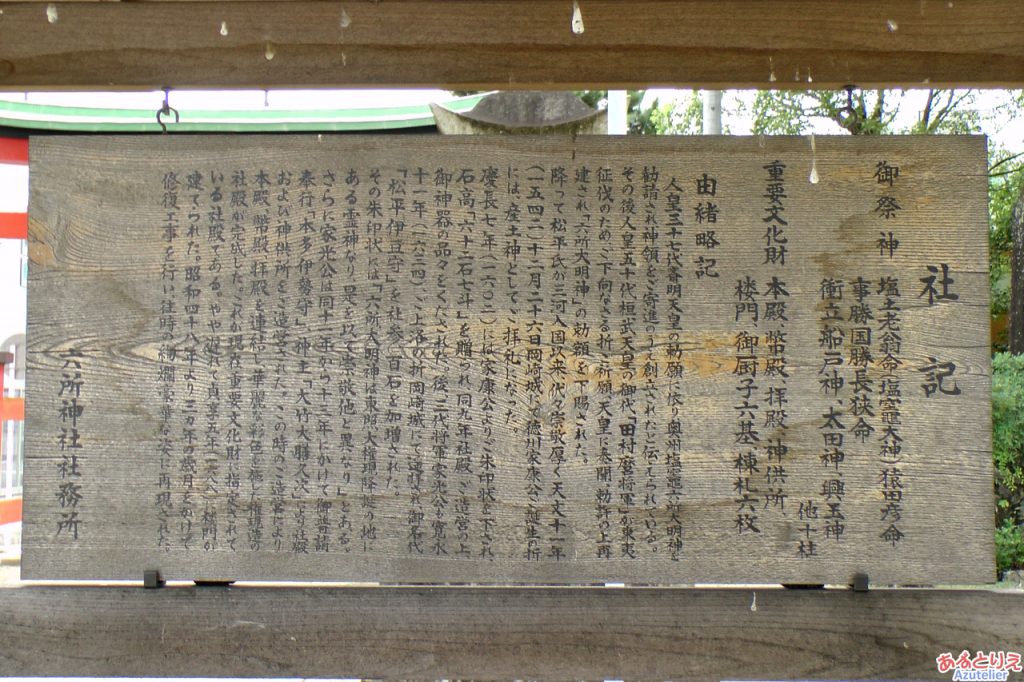 社記
御祭神 塩土老翁命、塩竈大神、猿田彦命
事勝国勝長狭命
衝立船戸神、太田神、興玉神
他十柱
重要文化財 本殿、幣殿、拝殿、神供所
楼門、御厨子六基、棟札六枚
由緒略記
人皇三十七代斉明天皇の勅願に依り奥州塩竈六所大明神を
勧請され神領をご寄進のうえ創立されたと伝えられている。
その後人皇五十代桓武天皇の御代、「田村麿将軍」が東夷
征伐のためご下向なさる折ご祈願、天皇に奏聞、勅許の上再
建され「六所大明神」の勅額を下賜された。
降って松平氏が三河入国以来代々崇敬厚く天文十一年
(一五四二)十二月二十六日岡崎城にて徳川家康公ご誕生の折
には産土神としてご拝礼になった。
慶長七年(一六〇二)には家康公よりご朱印状を下され、
石高「六十二石七斗」を贈られ同九年社殿ご造営の上、
御神器の品々をくだされた。後三代将軍家光公も寛永
十一年(一六三四)ご上洛の折岡崎城にて遥拝され御名代
「松平伊豆守」を社参、百石を加増された。
その朱印状には「六所大明神は東照大権現降誕の地に
ある霊神なり是を以て崇敬他と異なり」とある。
さらに家光公は同十一年から十三年にかけて御普請
奉行「本多伊勢守」、神主「大竹大膳久次」により社殿
および神供所をご造営された。この時のご造営により
本殿、幣殿、拝殿を連結し華麗な彩色を施た権現造の
社殿が完成した。これが現在重要文化財に指定されて
いる社殿である。やや遅れて貞享五年(一六八八)楼門が
建てられた。昭和四十八年より三カ年の歳月をかけて
修復工事を行い往時の絢爛豪華な姿に再現された。
六所神社社務所
あるとりえ
Azutelier